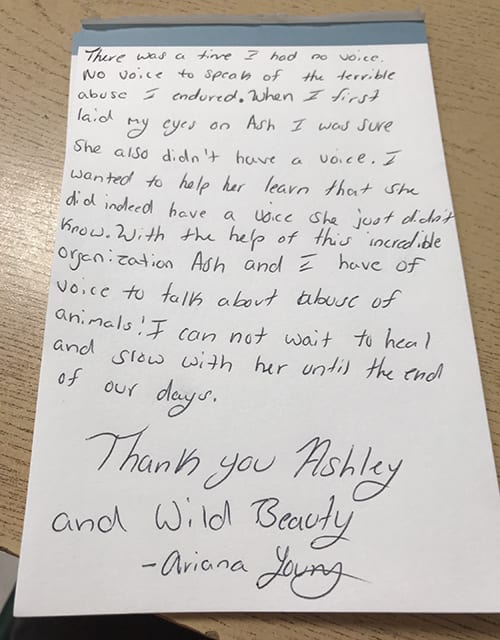 There was a time I had no voice.
No voice to speak of the terrible
abuse I endured. When I first
laid my eyes on Ash I was sure
She also didn't have a voice. I
wanted to help her learn that she
did indeed have a voice she just didn't
know. With the help of this incredible
organization Ash and I have of
voice to talk about abuse of
animals! I can not wait to heal
and slow with her until the end
of our days.
Thank you Ashley
and Wild Beauty
-Ariana Young